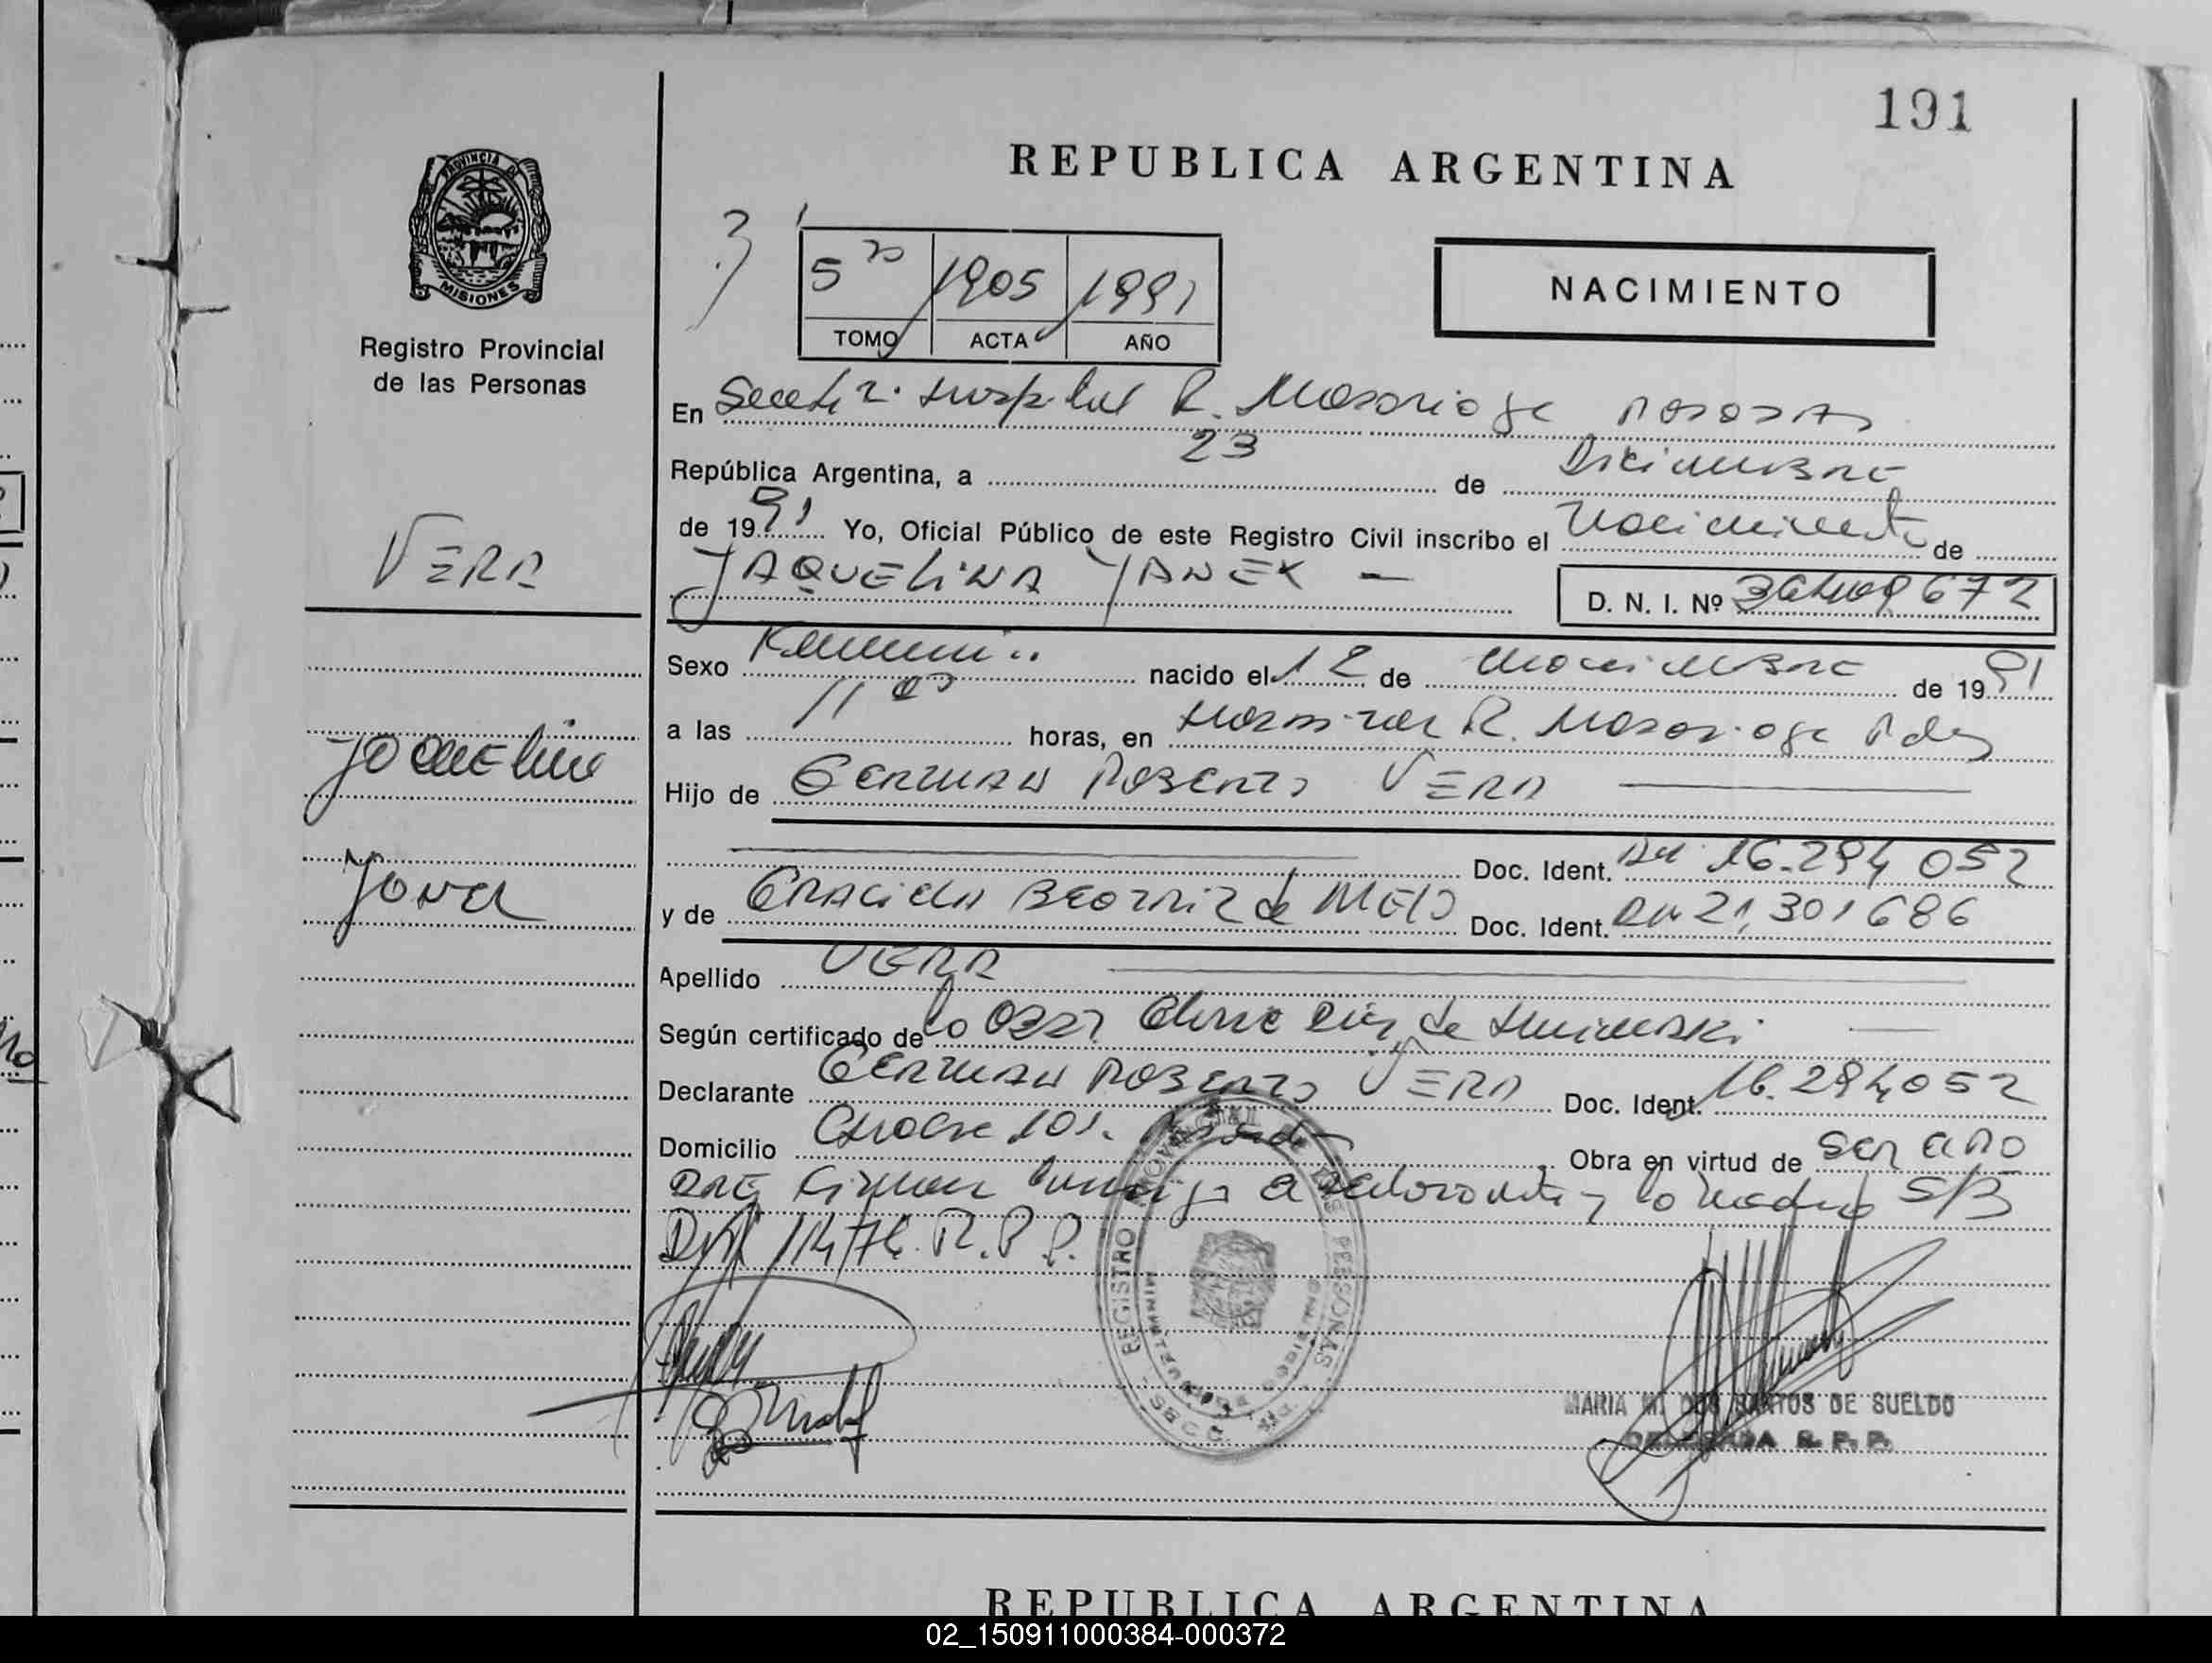 191
REPUBLICA ARGENTINA
PROVINCIA DE
MISIONES
Registro Provincial
de las Personas
5to 1905 1991
TOMO ACTA AÑO
NACIMIENTO
En Secc. 2. Hospital R. Madariaga POSADAS
República Argentina, a 23 de Diciembre
de 1991 Yo, Oficial Público de este Registro Civil inscribo el Nacimiento de
VERA
JAQUELINA YANEX —
D. N. I. Nº 672
Sexo Femenino nacido el 12 de Noviembre de 1991
a las 11 horas, en Hospital R. Madariaga Pdas
Jaquelina
Hijo de GERMAN ROBERTO VERA
Doc. Ident. DU 16.294 052
Yanex
y de GRACIELA BEATRIZ de MELO Doc. Ident. DU 21,301686
Apellido VERA
Según certificado de la Obst. de
Declarante GERMAN ROBERTO VERA Doc. Ident. 16.294052
Domicilio 101. Obra en virtud de ser
Firman y la madre S/
114/76. R.P.P.
REGISTRO PROVINCIAL DE LAS PERSONAS
MARIA M. DOS SANTOS DE SUELDO
DELEGADA R. P. P.
REPUBLICA ARGENTINA
02_150911000384-000372